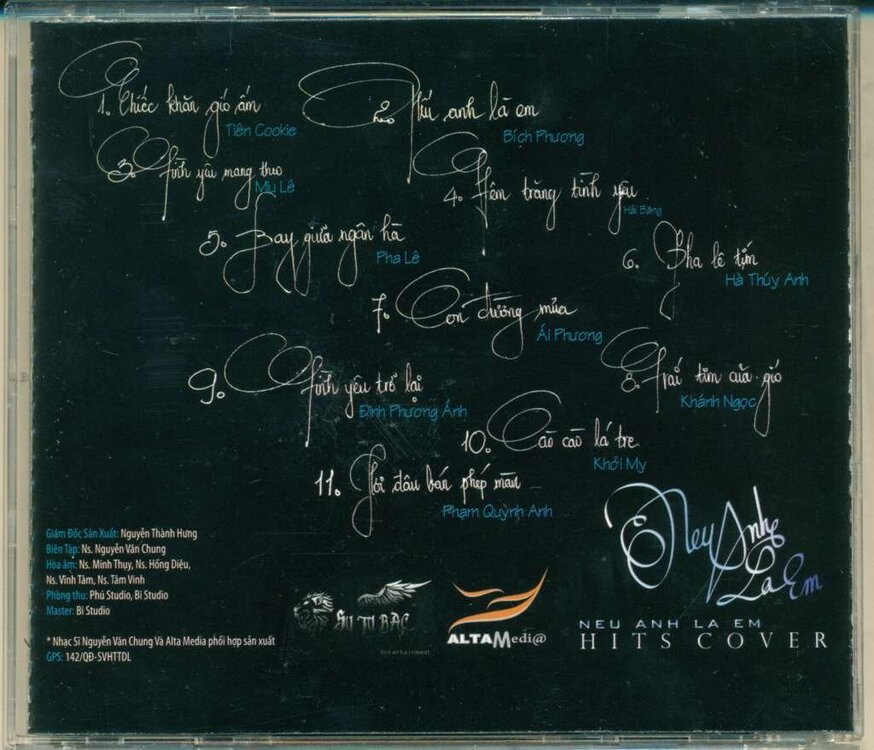 1. Chiếc khăn gió ấm
Tiên Cookie
2. Nếu anh là em
Bích Phương
3. Tình yêu mang theo
Miu Lê
4. Đêm trăng tình yêu
Hải Băng
5. Bay giữa ngân hà
Pha Lê
6. Pha lê tím
Hà Thúy Anh
7. Con đường mưa
Ái Phương
8. Trái tim của gió
Khánh Ngọc
9. Tình yêu trở lại
Đinh Phượng Ánh
10. Cào cào lá tre
Khởi My
11. Nơi đâu bán phép màu
Phạm Quỳnh Anh
Giám Đốc Sản Xuất: Nguyễn Thành Hưng
Biên Tập: Ns. Nguyễn Văn Chung
Hòa âm: Ns. Minh Thụy, Ns. Hồng Diệu,
Ns. Vĩnh Tâm, Ns. Tâm Vinh
Phòng thu: Phú Studio, Bi Studio
Master: Bi Studio
* Nhạc Sĩ Nguyễn Văn Chung Và Alta Media phối hợp sản xuất
GPS: 142/QĐ-SVHTTDL
SU TU BAC
Entertainment
ALTAMedi@
Neu Anh
La Em
NEU ANH LA EM
HITS COVER